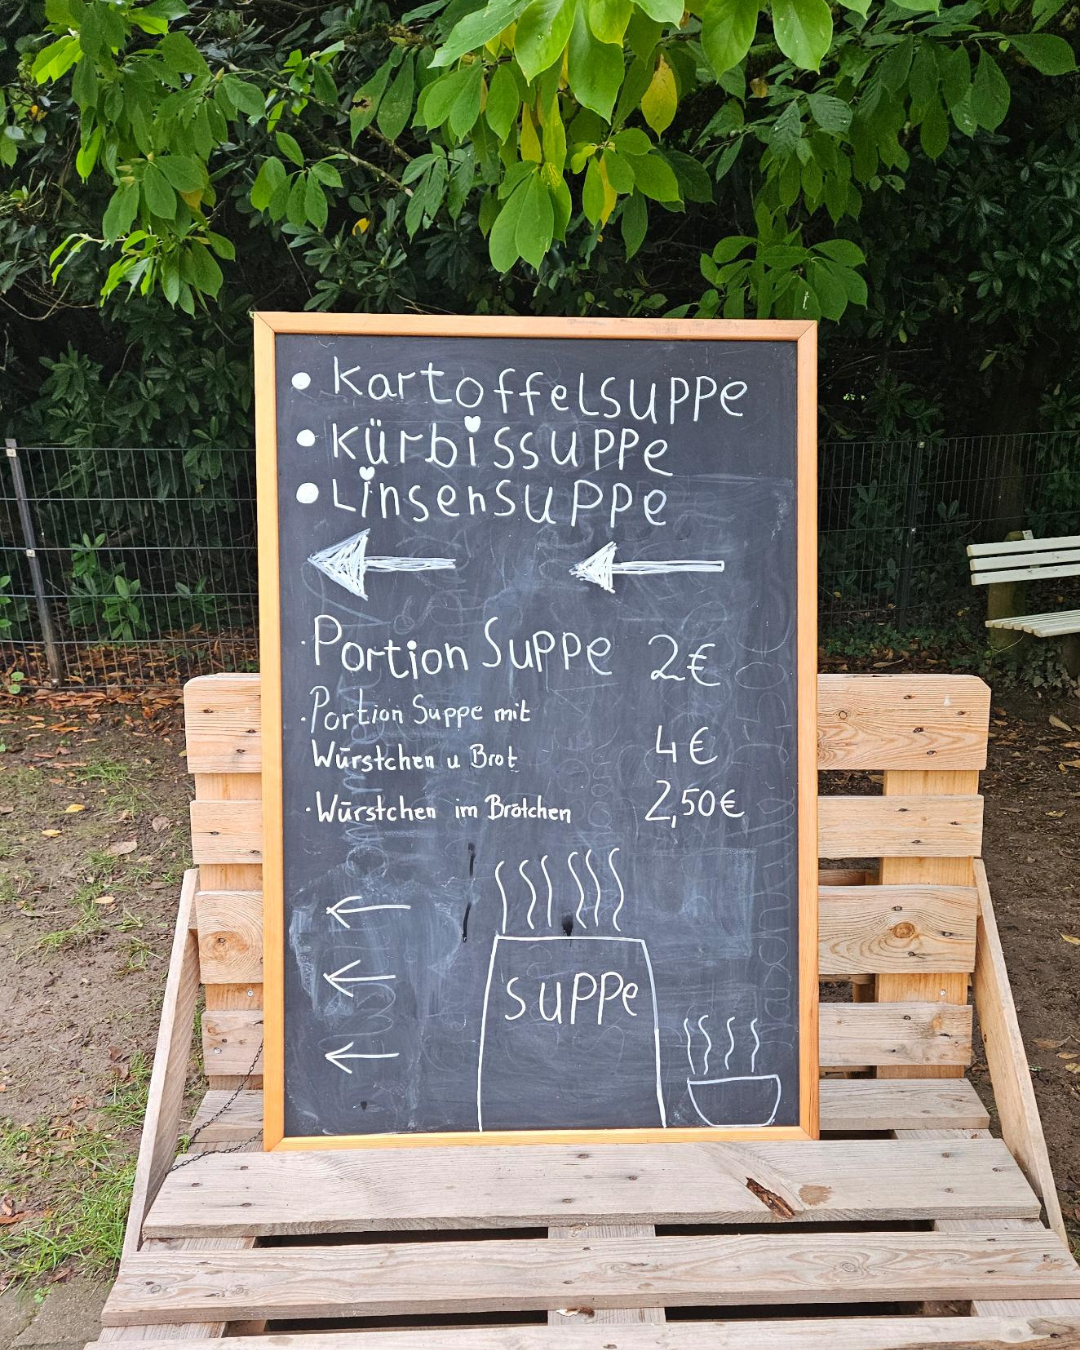 • Kartoffelsuppe
• Kürbissuppe
• Linsensuppe
· Portion Suppe 2€
· Portion Suppe mit
Würstchen u Brot 4€
· Würstchen im Brötchen 2,50€
Suppe